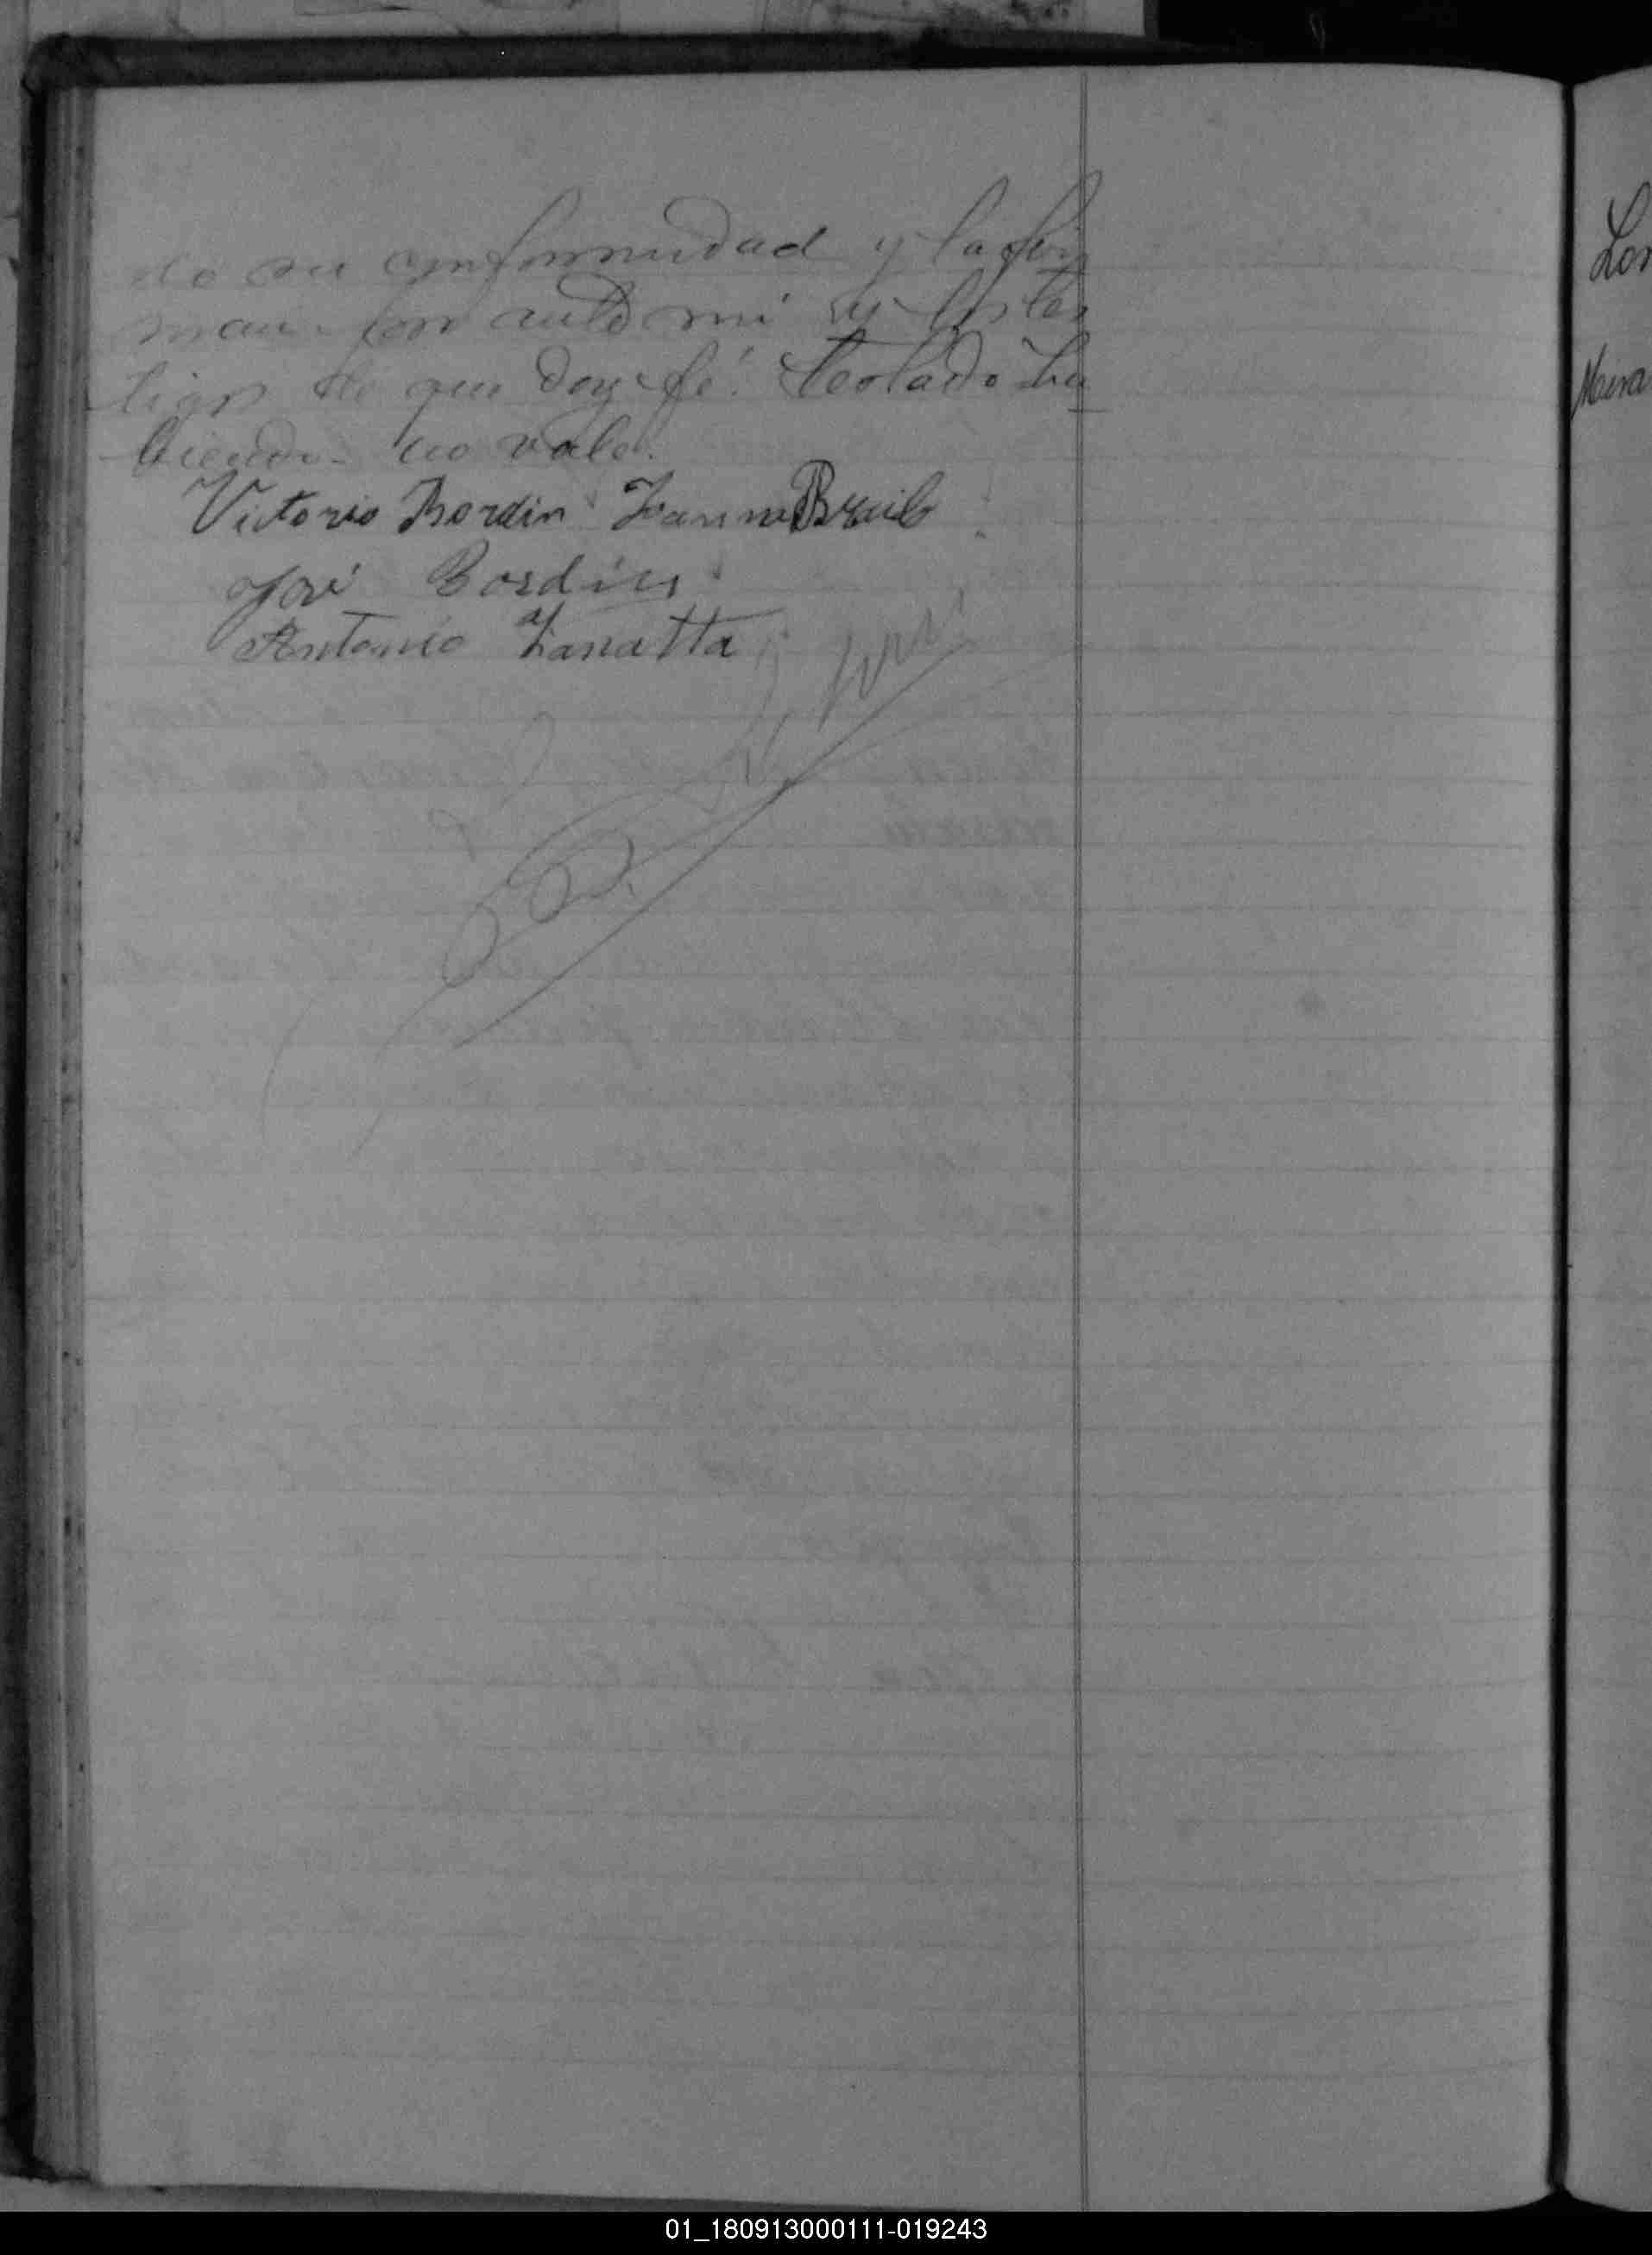 do su conformidad y la fir
maron con ante mi y los tes
tigos de que doy fé. Testado ha
biendo no vale.
Victorio Bordin Bra
José Bordin
Antonio Zanatta
Lor
01_180913000111-019243